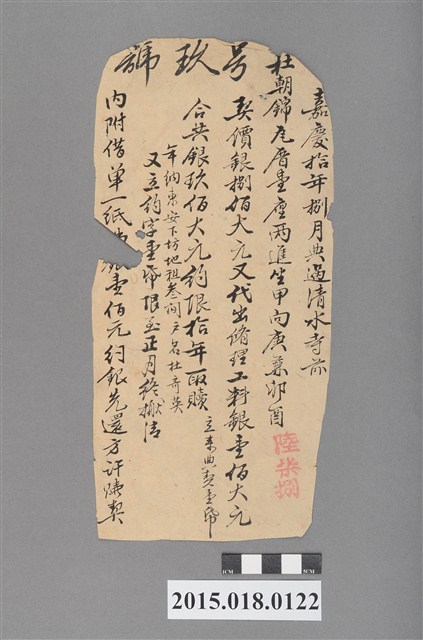 号玖號
嘉慶拾年捌月典過清水寺前
杜朝錦瓦厝壹座兩進坐甲向庚兼卯酉
契價銀捌佰大元又代出脩理工料銀壹佰大元
合共銀玖佰大元約限拾年取贖
立来典契壹紙
年納東安下坊地租叁間户名杜奇英
又立約字壹紙限至正月終搬清
內附借单一紙 銀壹佰元約銀先還方許贖契
陸柒捌
2015.018.0122
1CM
5CM